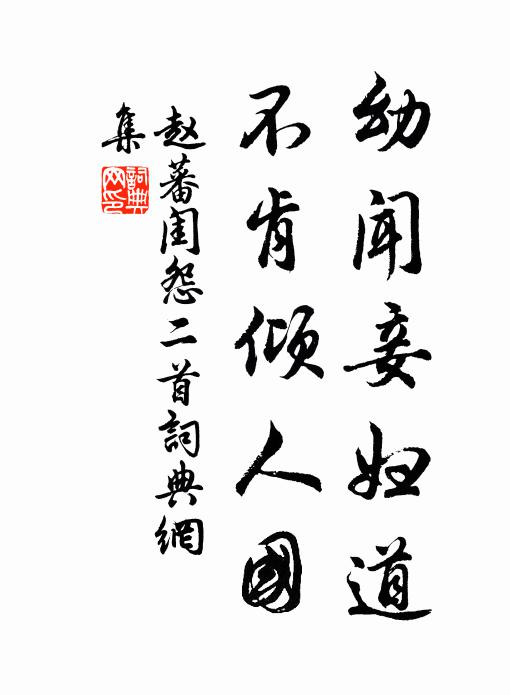 幼闻妾妇道
不肯倾人國
赵蕃闺怨二首詞典網
集
詞典
网印